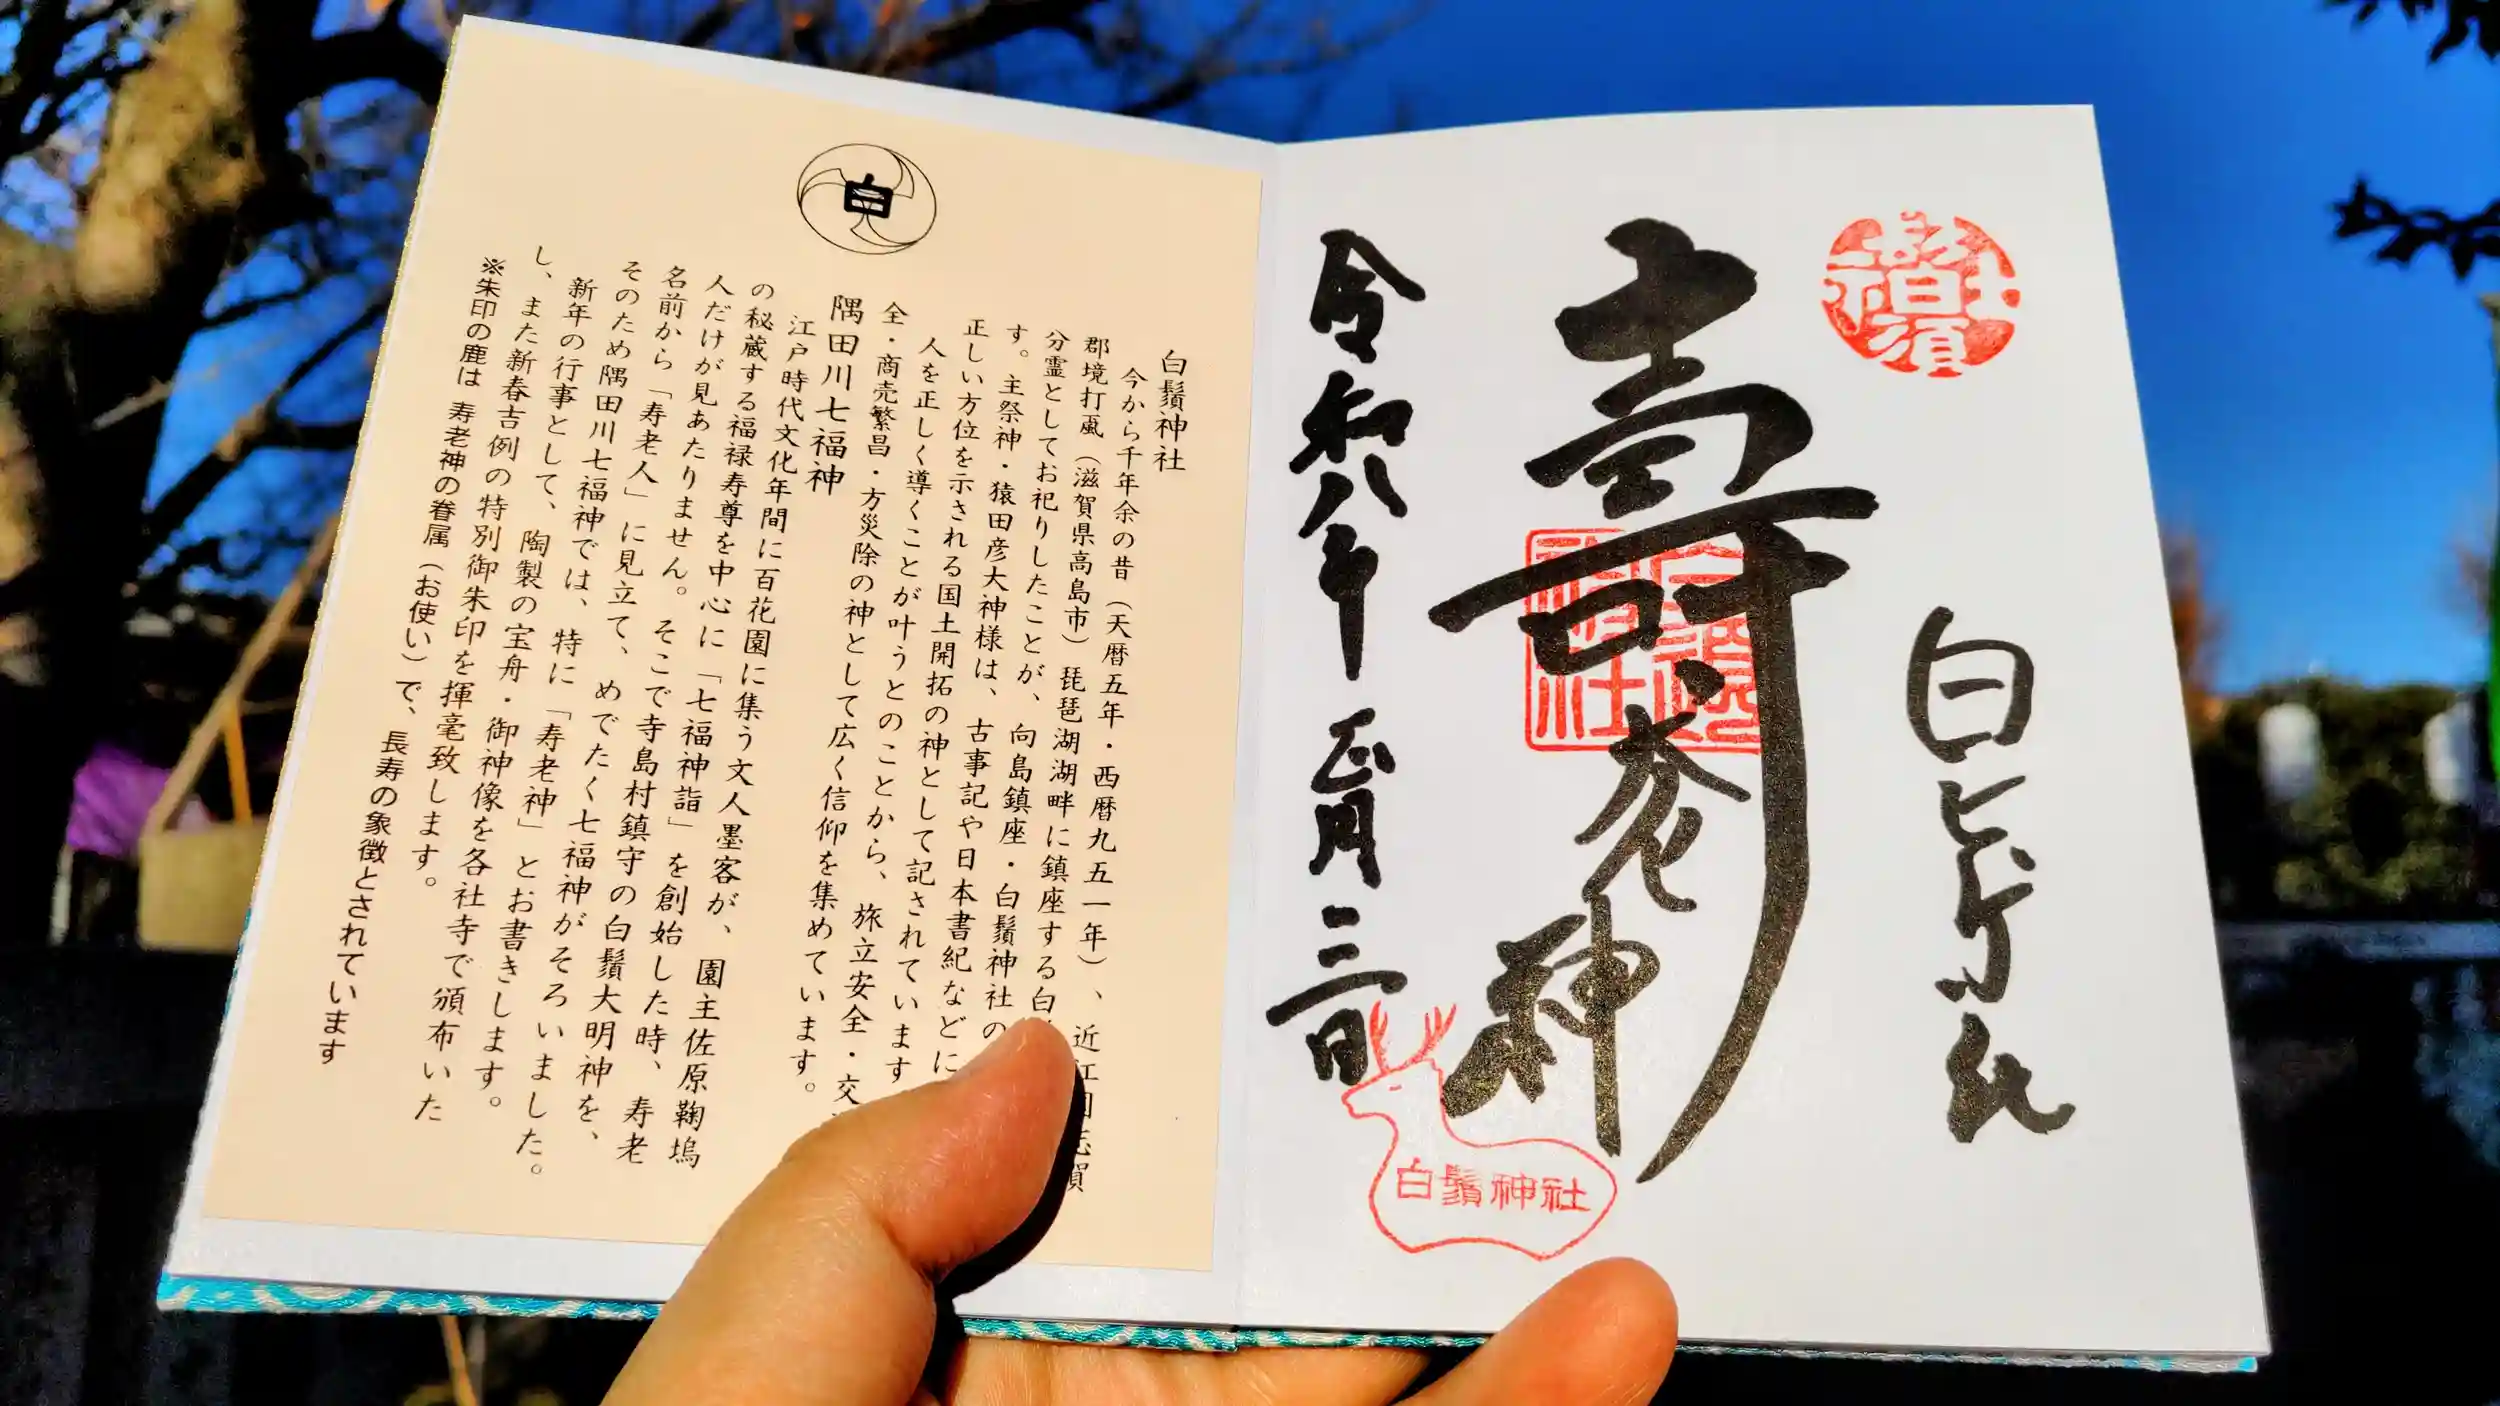 白鬚神社
壽老神
令和八年正月三日
白鬚神社
白
白鬚神社
今から千年余の昔（天暦五年・西暦九五一年）、近江国志賀
郡境打颪（滋賀県高島市）琵琶湖湖畔に鎮座する白
分霊としてお祀りしたことが、向島鎮座・白鬚神社の
す。主祭神・猿田彦大神様は、古事記や日本書紀などに
正しい方位を示される国土開拓の神として記されています
人を正しく導くことが叶うとのことから、旅立安全・交
全・商売繁昌・方災除の神として広く信仰を集めています。
隅田川七福神
江戸時代文化年間に百花園に集う文人墨客が、園主佐原鞠塢
の秘蔵する福禄寿尊を中心に「七福神詣」を創始した時、寿老
人だけが見あたりません。そこで寺島村鎮守の白鬚大明神を、
名前から「寿老人」に見立て、めでたく七福神がそろいました。
そのため隅田川七福神では、特に「寿老神」とお書きします。
新年の行事として、陶製の宝舟・御神像を各社寺で頒布いた
し、また新春吉例の特別御朱印を揮毫致します。
※朱印の鹿は 寿老神の眷属（お使い）で、長寿の象徴とされています